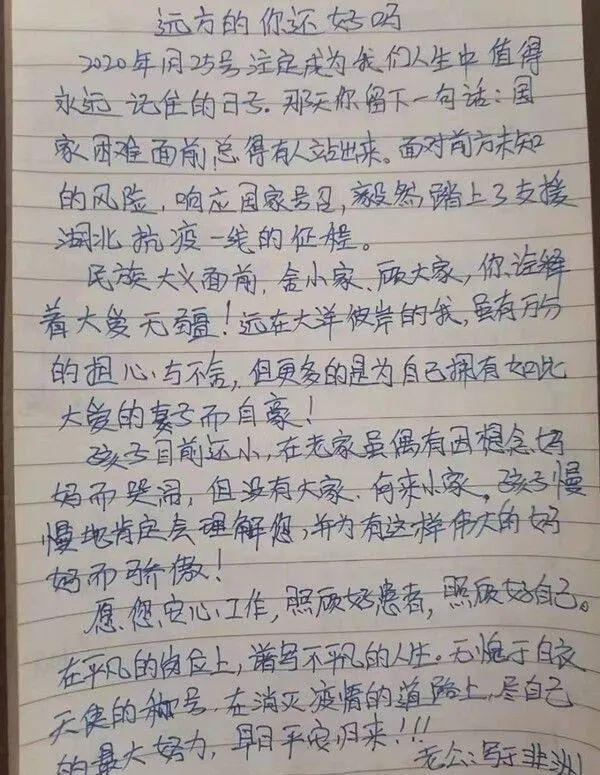 远方的你还好吗
2020年1月25号注定成为我们人生中值得
永远记住的日号.那天你留下一句话：国
家困难面前,总得有人站出来。面对前方未知
的风险,响应国家号召,毅然踏上了支援
湖北抗疫一线的征程。
民族大义面前,舍小家、顾大家,你诠释
着大爱无疆！远在大洋彼岸的我,虽有万分
的担心与不舍,但更多的是为自己拥有如此
大爱的妻子而自豪！
孩子目前还小,在老家虽偶有因想念妈
妈而哭闹,但没有大家、何来小家。孩子慢
慢地肯定会理解您,并为有这样伟大的妈
妈而骄傲！
愿您安心工作,照顾好患者,照顾好自己。
在平凡的岗位上,谱写不平凡的人生。无愧于白衣
天使的称号.在消灭疫情的道路上,尽自己
的最大努力,早日平安归来！！！
老公:写于非洲